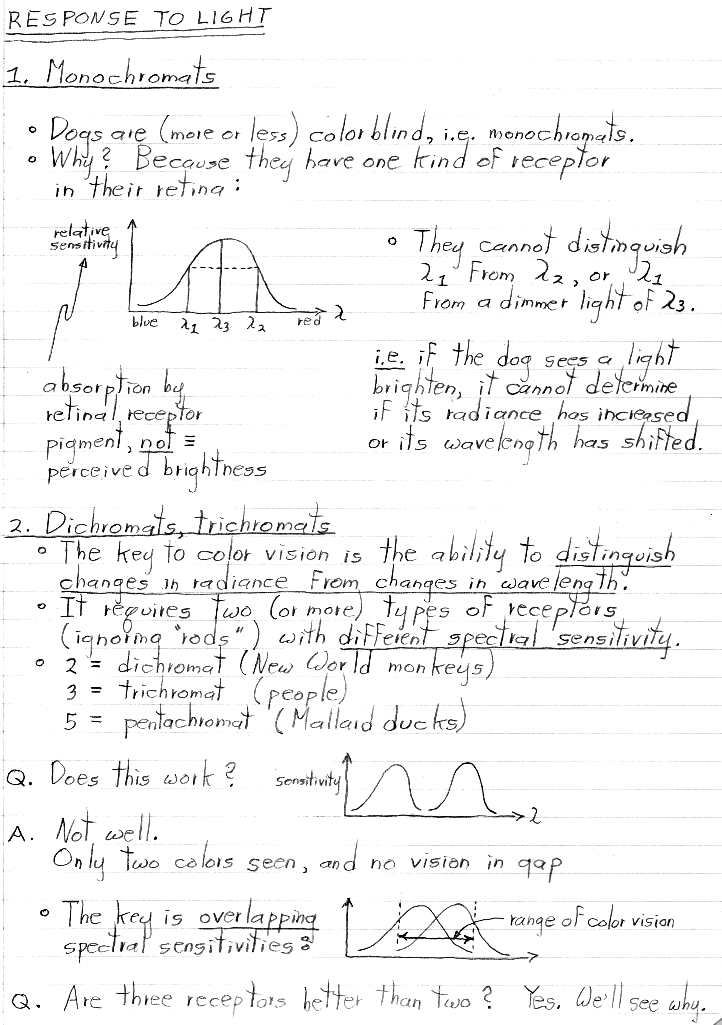 RESPONSE TO LIGHT
1. Monochromats
• Dogs are (more or less) color blind, i.e. monochromats.
• Why? Because they have one kind of receptor
in their retina:
relative
sensitivity
blue λ1 λ3 λ2 red λ
absorption by
retinal receptor
pigment, not ≡
perceived brightness
• They cannot distinguish
λ1 from λ2, or λ1
from a dimmer light of λ3.
i.e. if the dog sees a light
brighten, it cannot determine
if its radiance has increased
or its wavelength has shifted.
2. Dichromats, trichromats
• The key to color vision is the ability to distinguish
changes in radiance from changes in wavelength.
• It requires two (or more) types of receptors
(ignoring "rods") with different spectral sensitivity.
• 2 = dichromat (New World monkeys)
3 = trichromat (people)
5 = pentachromat (Mallard ducks)
Q. Does this work?
sensitivity
λ
A. Not well.
Only two colors seen, and no vision in gap
• The key is overlapping
spectral sensitivities:
range of color vision
Q. Are three receptors better than two? Yes. We'll see why.